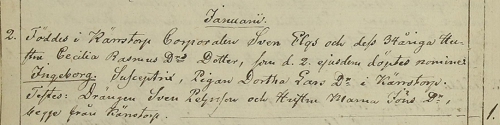 Januarii.
2. Föddes i Kärrstorp Corporalen Sven Elgs och dess 34åriga Hu-
stru Cecilia Rasmus Dr Dotter, som d. 2. ejusdem döptes nomine
Ingeborg. Susceptrix, Pigan Dortha Lars Dr i Kärrstorp.
Testes: Drängen Sven Pehrsson och Hustru Marna Töns Dr,
begge från Kärrstorp. 1